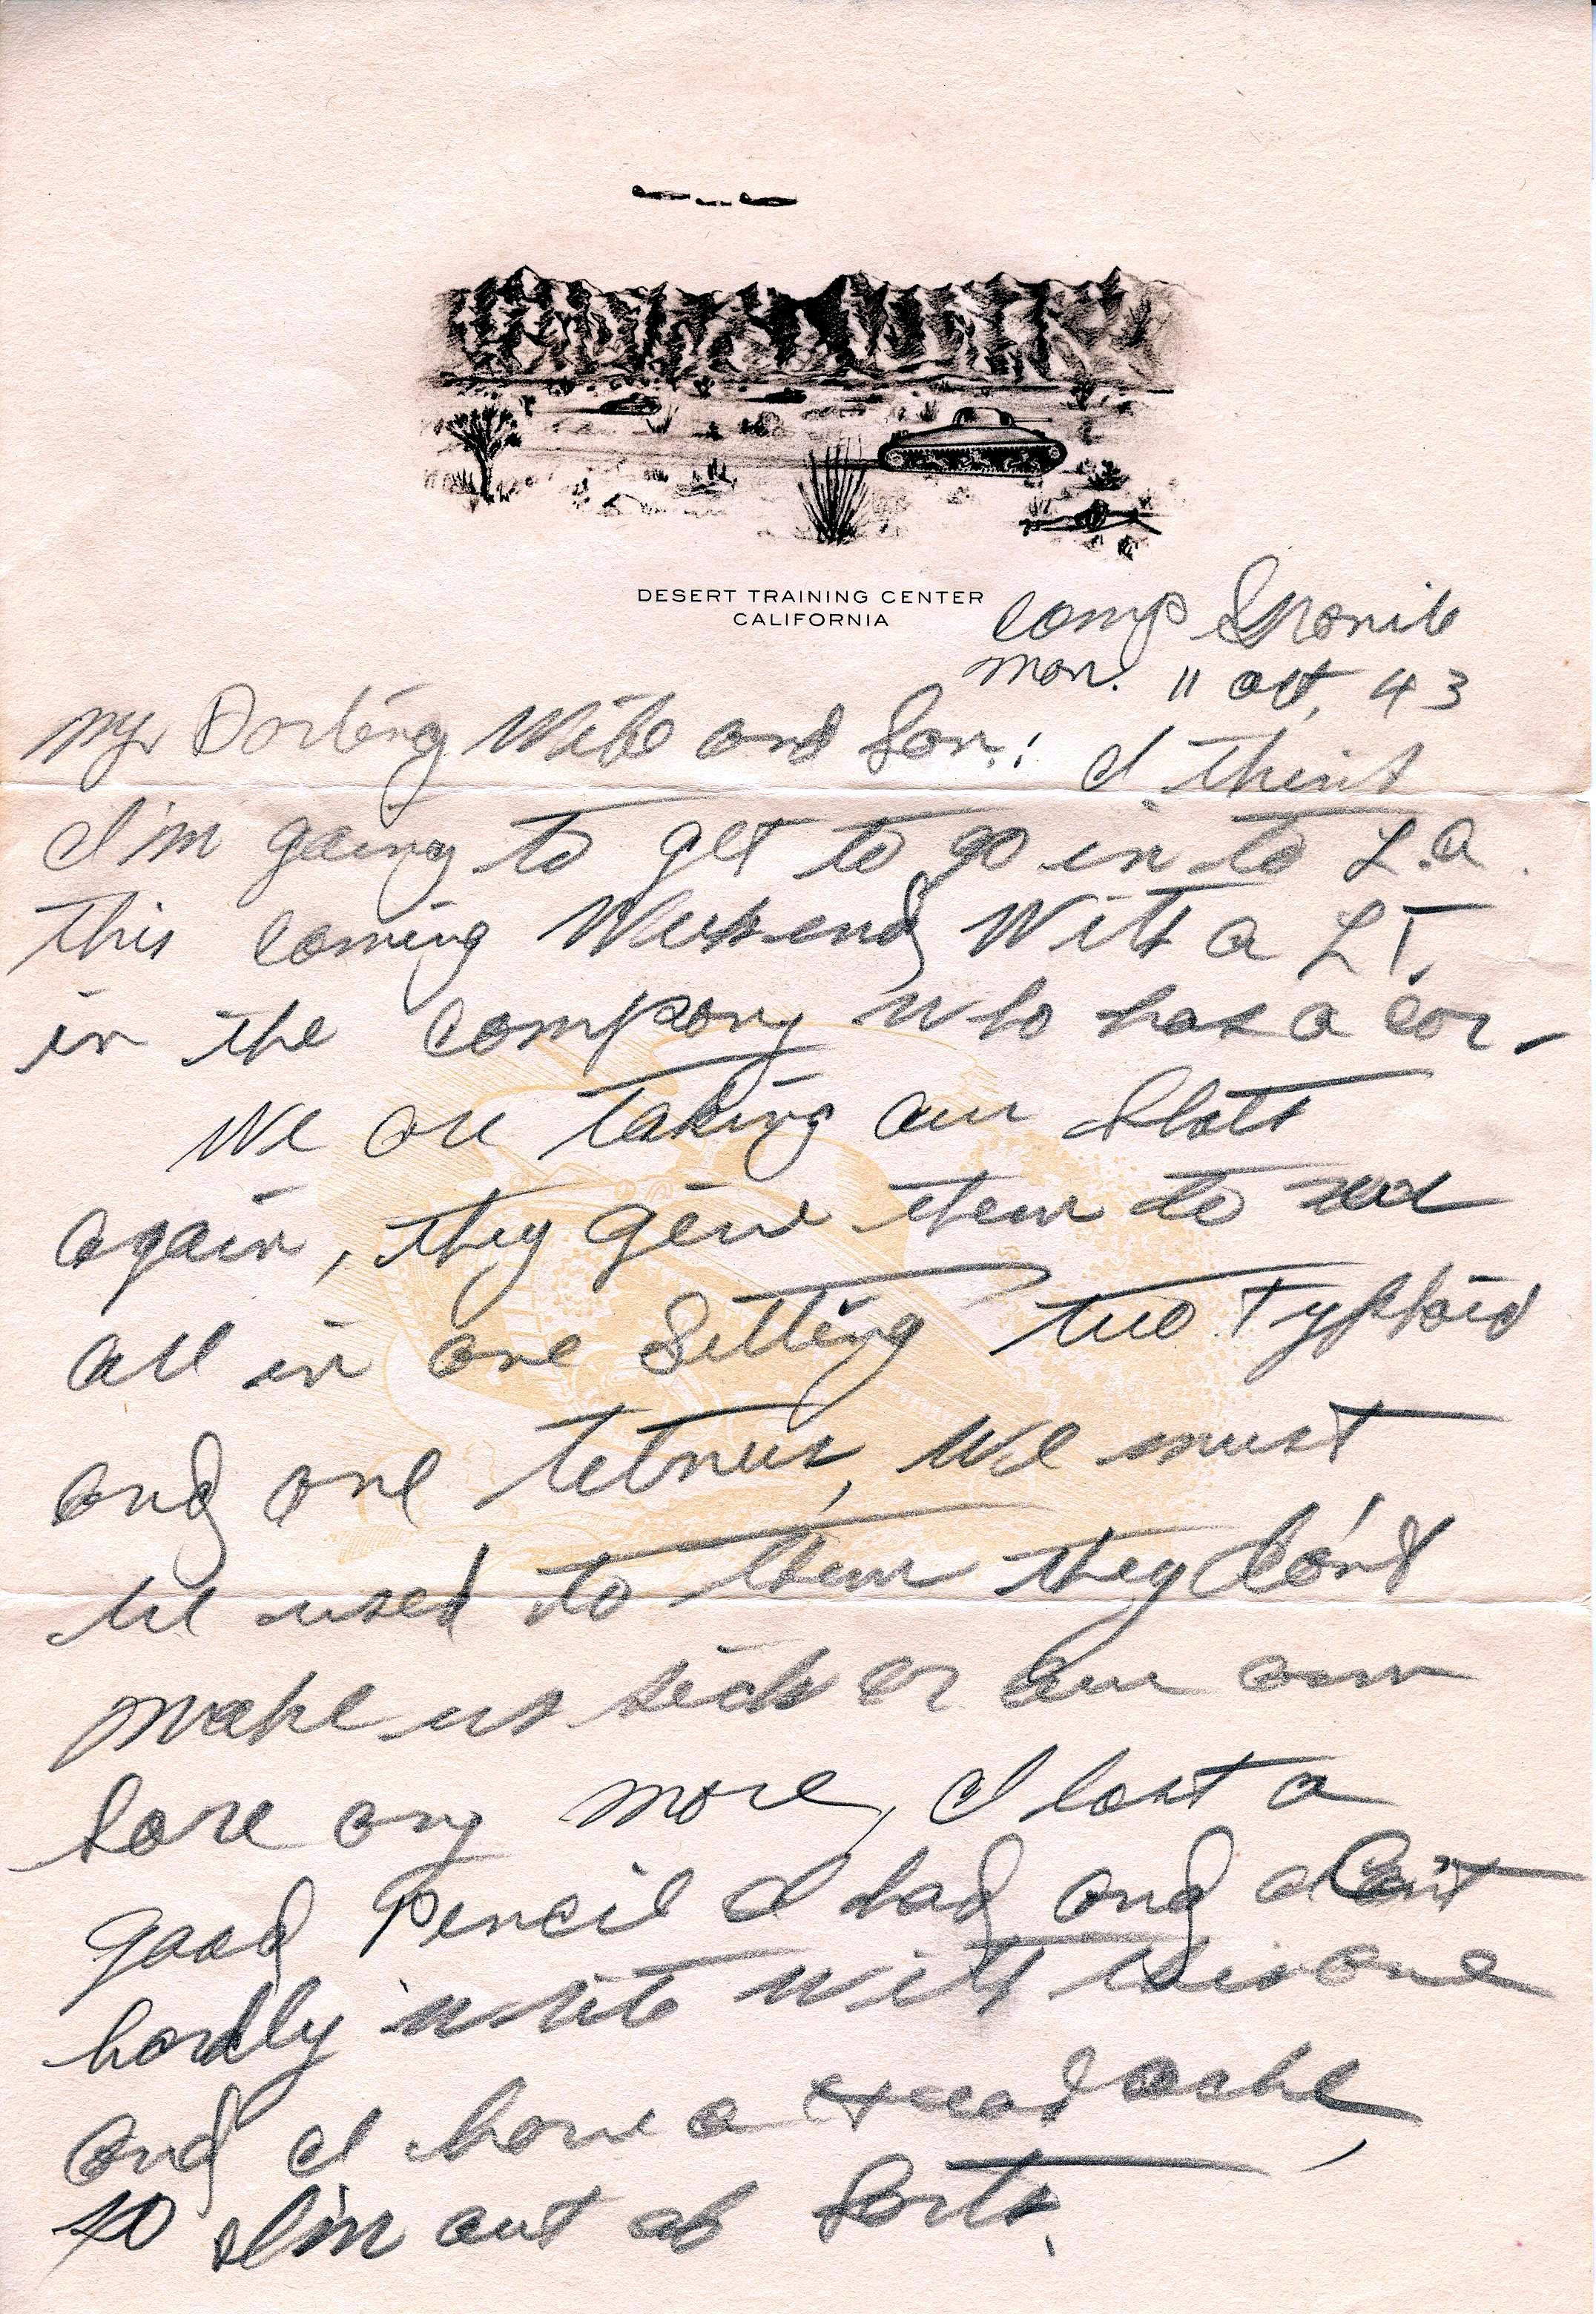 DESERT TRAINING CENTER
CALIFORNIA
Camp Granite
Mon. 11 Oct, 43
My Darling Wife and Son: I think
I'm going to get to go in to L.A.
this coming Weekend With a LT.
in the company who has a car.
We are taking our Shots
again, they give them to us
all in one Setting two Typhoid
and one tetnus, we must
be used to them they don't
make us sick or our arm
sore any more, I lost a
good Pencil I had and I Can't
hardly write with this one
and I have a Headache,
so I'm out of Sorts.